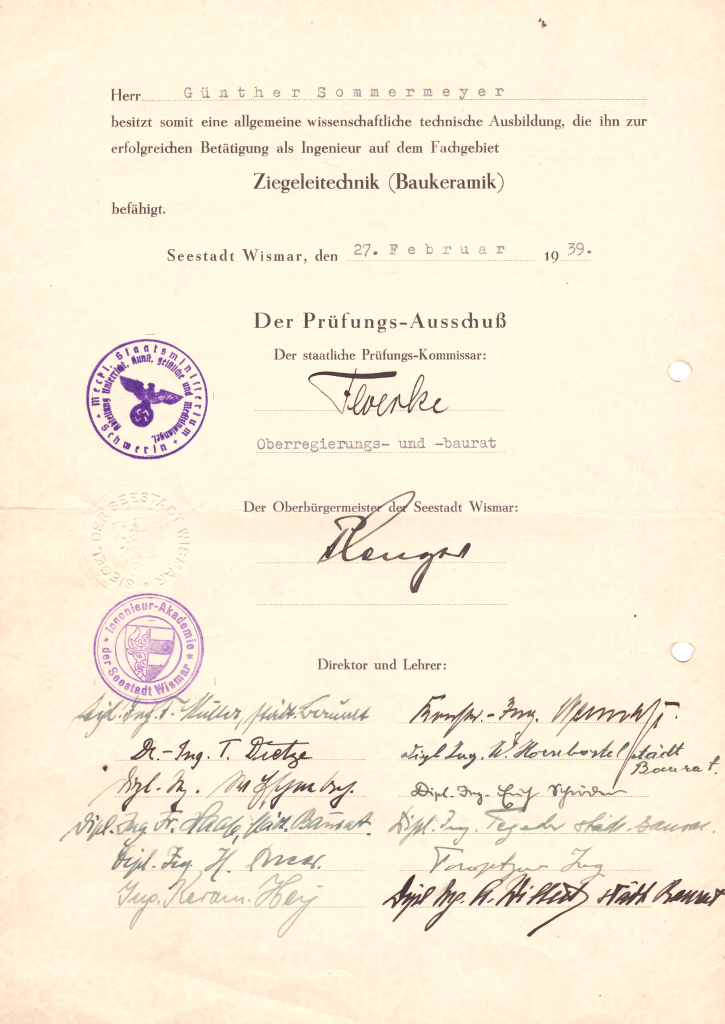 Herr Günther Sommermeyer
besitzt somit eine allgemeine wissenschaftliche technische Ausbildung, die ihn zur
erfolgreichen Betätigung als Ingenieur auf dem Fachgebiet
Ziegeleitechnik (Baukeramik)
befähigt.
Seestadt Wismar, den 27. Februar 1939.
Der Prüfungs-Ausschuß
Der staatliche Prüfungs-Kommissar:
Meckl. Staatsministerium
Abteilung Unterricht, Kunst, geistliche und Medizinalangel.
Schwerin
Oberregierungs- und -baurat
Der Oberbürgermeister der Seestadt Wismar:
SIEGEL DER SEESTADT WISMAR
Ingenieur-Akademie
der Seestadt Wismar
Direktor und Lehrer:
Dipl. Ing. Müller, städt. Baurat
Dr.-Ing. T. Dietze
Dipl. Ing. W. Hornbostel städt
Baurat.
Dipl. Ing.
Dipl.-Ing. Erich
Dipl. Ing. Fr. städt. Baurat.
Dipl. Ing. städt. Baurat.
Dipl. Ing. H.
Ing
Ing. Keram.
Dipl Ing. A. städt Baurat